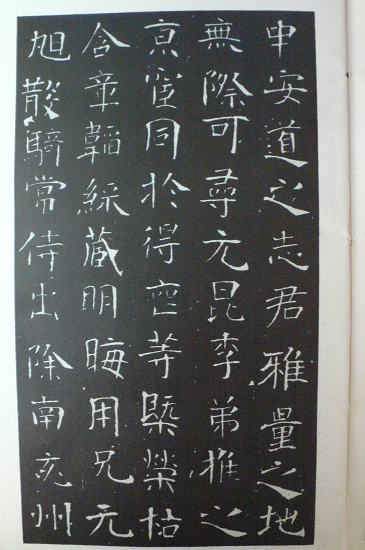 申安道之志君雅量之地
無際可尋元昆季弟推之
京同於得等槩榮枯
含章韜綵藏明晦用兄元
旭散騎常侍出除南兗州